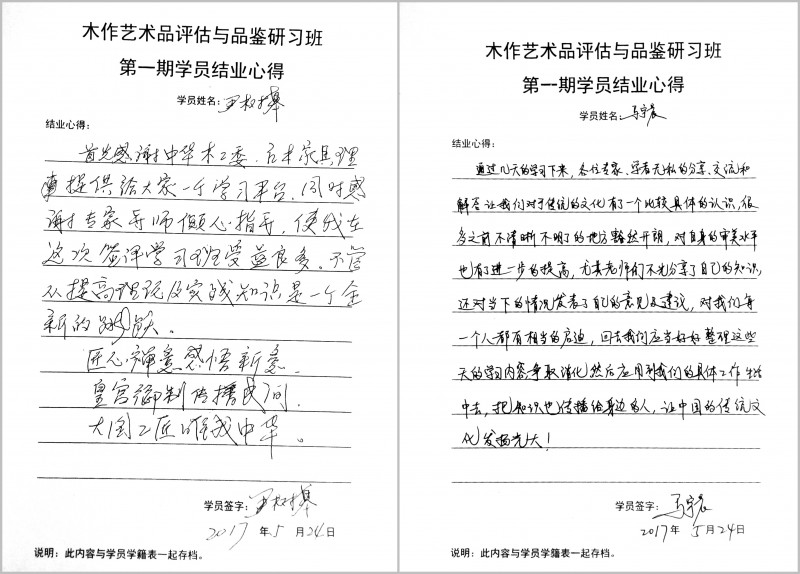 木作艺术品评估与品鉴研习班
第一期学员结业心得
学员姓名:
结业心得:
首先感谢中华木工委、古木家具理
事提供给大家一个学习平台,同时感
谢专家导师倾心指导,使我在
这次鉴评学习班受益良多。不管
从提高理论及实践知识是一个全
新的跨跃。
匠心禅意感悟新意
皇宫御制传播民间
大国工匠唯我中华。
学员签字:
2017 年 5 月 24 日
说明:此内容与学员学籍表一起存档。
木作艺术品评估与品鉴研习班
第一期学员结业心得
学员姓名:马宇晨
结业心得:
通过几天的学习下来,各位专家、学者无私的分享、交流和
解答让我们对于传统的文化有了一个比较具体的认识,很
多之前不清晰不明了的地方豁然开朗,对自身的审美水平
也有了进一步的提高,尤其老师们不光分享了自己的知识,
还对当下的情况发表了自己的意见及建议,对我们每
一个人都有相当的启迪,回去我们应当好好整理这些
天的学习内容,争取消化然后应用到我们的具体工作生活
中去,把知识也传播给身边的人,让中国的传统文
化发扬光大!
学员签字:马宇晨
2017年 5月24日
说明:此内容与学员学籍表一起存档。